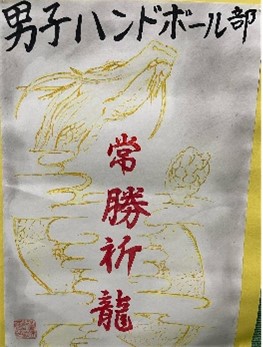 男子ハンドボール部
常勝祈龍